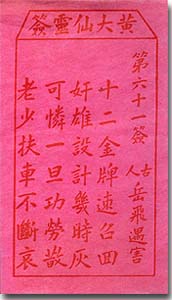 黃大仙靈簽
第六十一簽
古人 岳飛遇害
十二金牌速召回
奸雄設計幾時灰
可憐一旦功勞散
老少扶車不斷哀